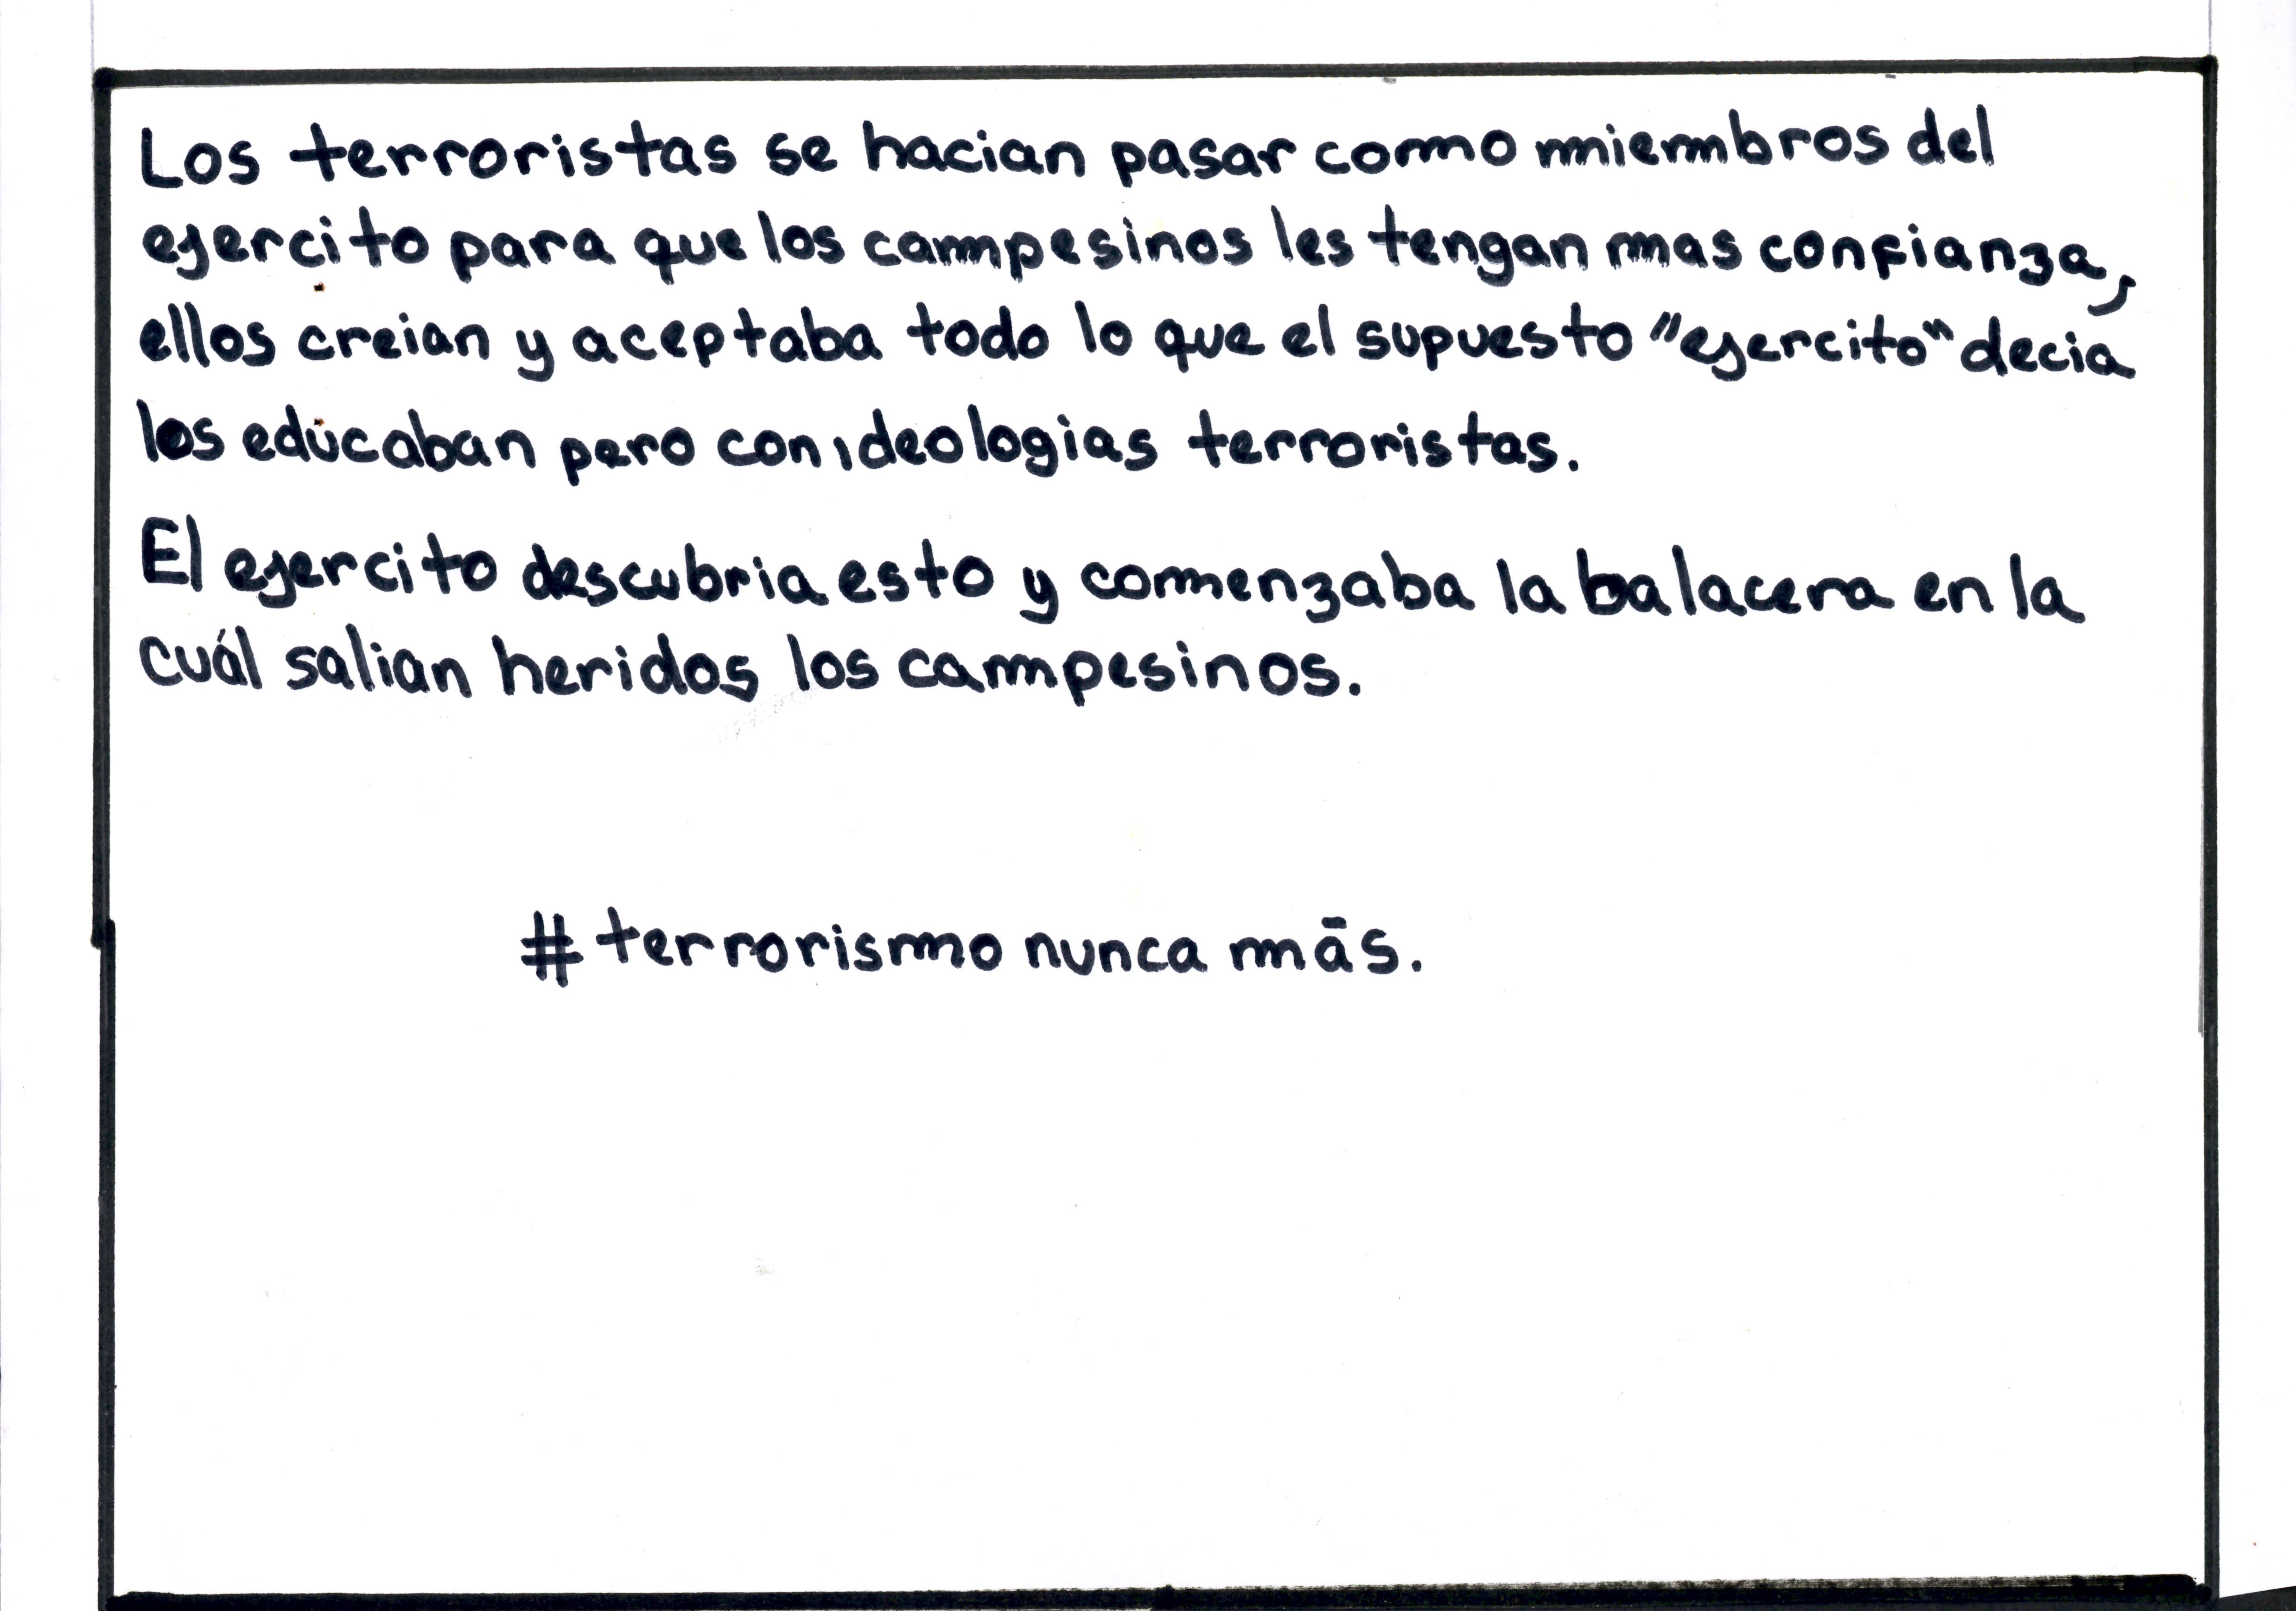 Los terroristas se hacian pasar como miembros del
ejercito para que los campesinos les tengan mas confianza,
ellos creian y aceptaba todo lo que el supuesto "ejercito" decia
los educaban pero con ideologias terroristas.
El ejercito descubria esto y comenzaba la balacera en la
cuál salian heridos los campesinos.
# terrorismo nunca más.